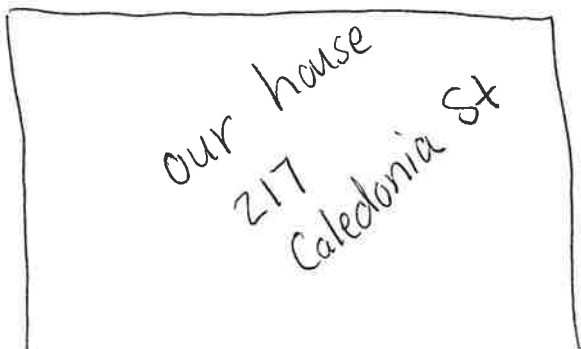 our house
217
Caledonia St